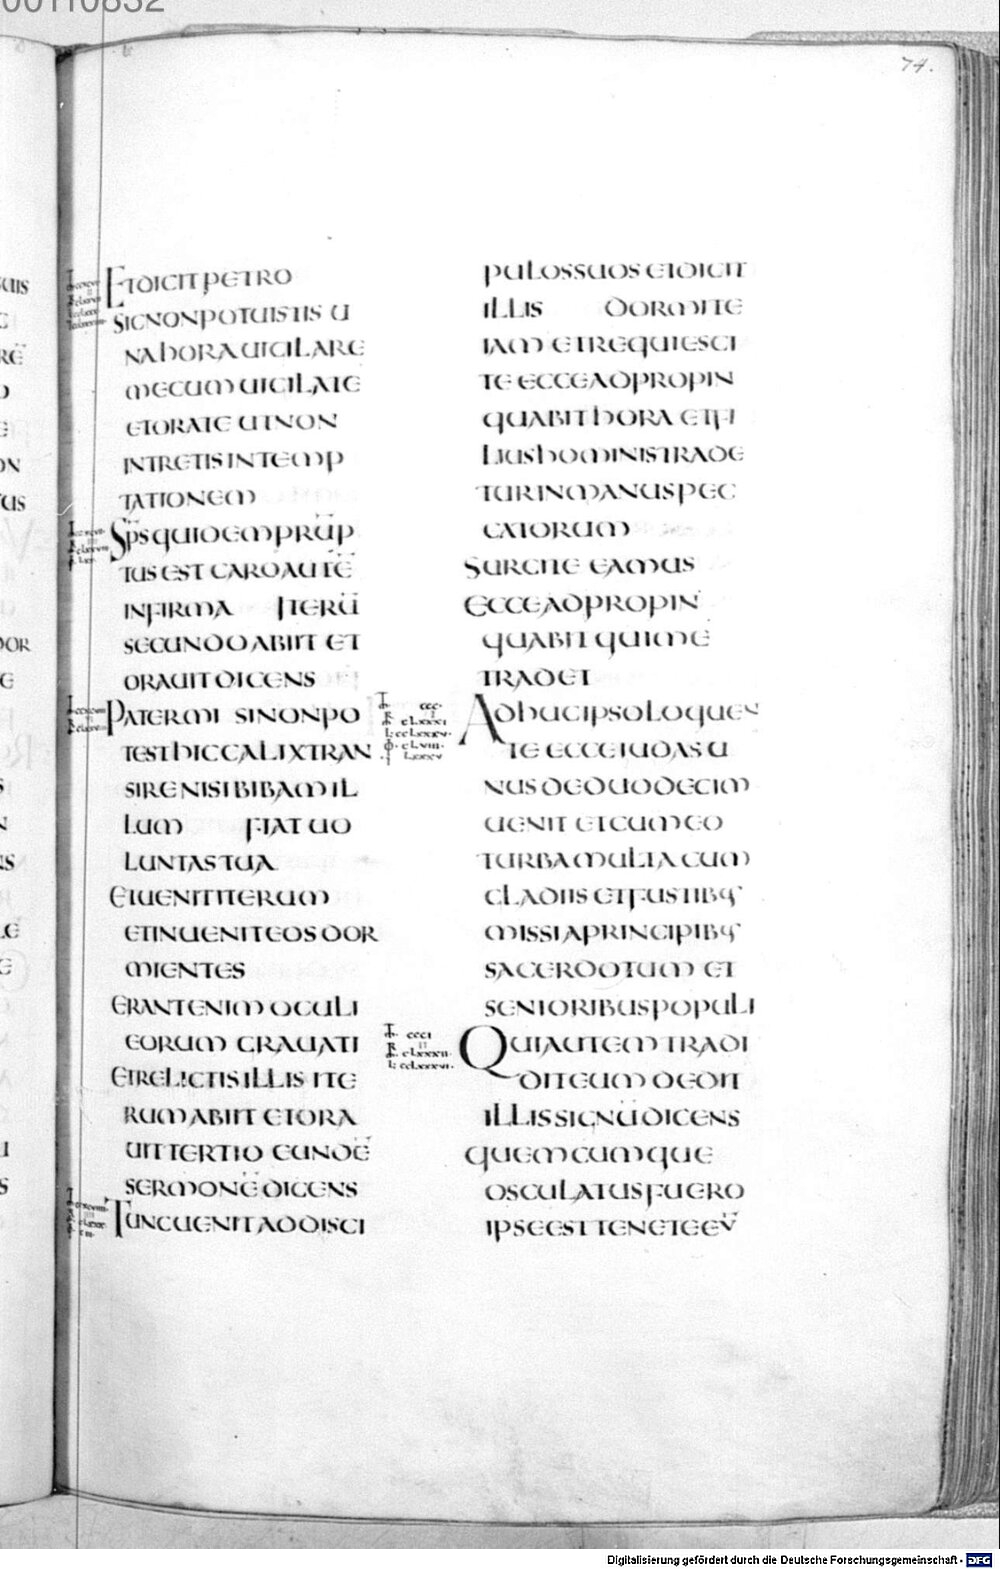 00110832
74.
ETDICIT PETRO
SICNONPOTUISTIS U
NAHORA UIGILARE
MECUM UIGILATE
ETORATE UTNON
INTRETIS INTEMP
TATIONEM
SP̅S QUIDEMPRŪP
TUS EST CAROAUTĒ
INFIRMA ITERŪ
SECUNDO ABIIT ET
ORAUIT DICENS
PATERMI SINONPO
TEST HIC CALIXTRAN
SIRE NISI BIBAM IL
LUM FIAT UO
LUNTAS TUA
ETUENIT ITERUM
ETINUENIT EOS DOR
MIENTES
ERANTENIM OCULI
EORUM GRAUATI
ETRELICTIS ILLIS ITE
RUM ABIIT ETORA
UIT TERTIO EUNDĒ
SERMONĒ DICENS
TUNCUENIT AD DISCI
PULOS SUOS ETDICIT
ILLIS DORMITE
IAM ETREQUIESCI
TE ECCE ADPROPIN
QUABIT HORA ETFI
LIUS HOMINIS TRADE
TUR INMANUS PEC
CATORUM
SURGITE EAMUS
ECCE ADPROPIN
QUABIT QUI ME
TRADET
ADHUC IPSO LOQUEN
TE ECCE IUDAS U
NUS DE DUODECIM
UENIT ET CUM EO
TURBA MULTA CUM
GLADIIS ET FUSTIBQ'
MISSI A PRINCIPIBQ'
SACERDOTUM ET
SENIORIBUS POPULI
ccci
clxxxii
cclxxxvi.
QUIAUTEM TRADI
DIT EUM DEDIT
ILLIS SIGNŪ DICENS
QUEMCUMQUE
OSCULATUS FUERO
IPSE EST TENETE EV̅
Digitalisierung gefördert durch die Deutsche Forschungsgemeinschaft - DFG